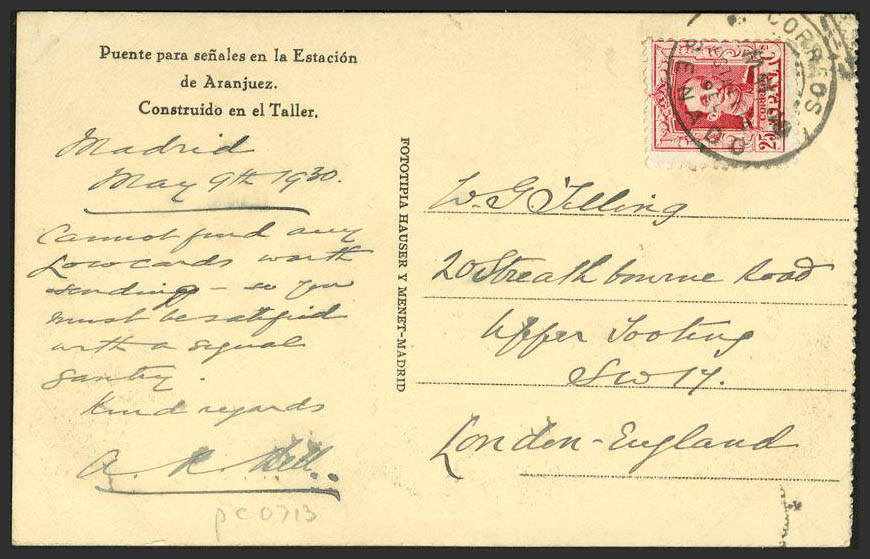 Puente para señales en la Estación
de Aranjuez.
Construido en el Taller.
Madrid
May 9th 1930.
Cannot find any
Loco cards worth
sending - so you
must be satisfied
with a signal
gantry.
Kind regards
A. R. Bell.
pc0713
FOTOTIPIA HAUSER Y MENET-MADRID
CORREOS
25
CORREOS
ESPAÑA
W.G Tilling
20 Streathbourne Road
Upper Tooting
SW 17.
London-England